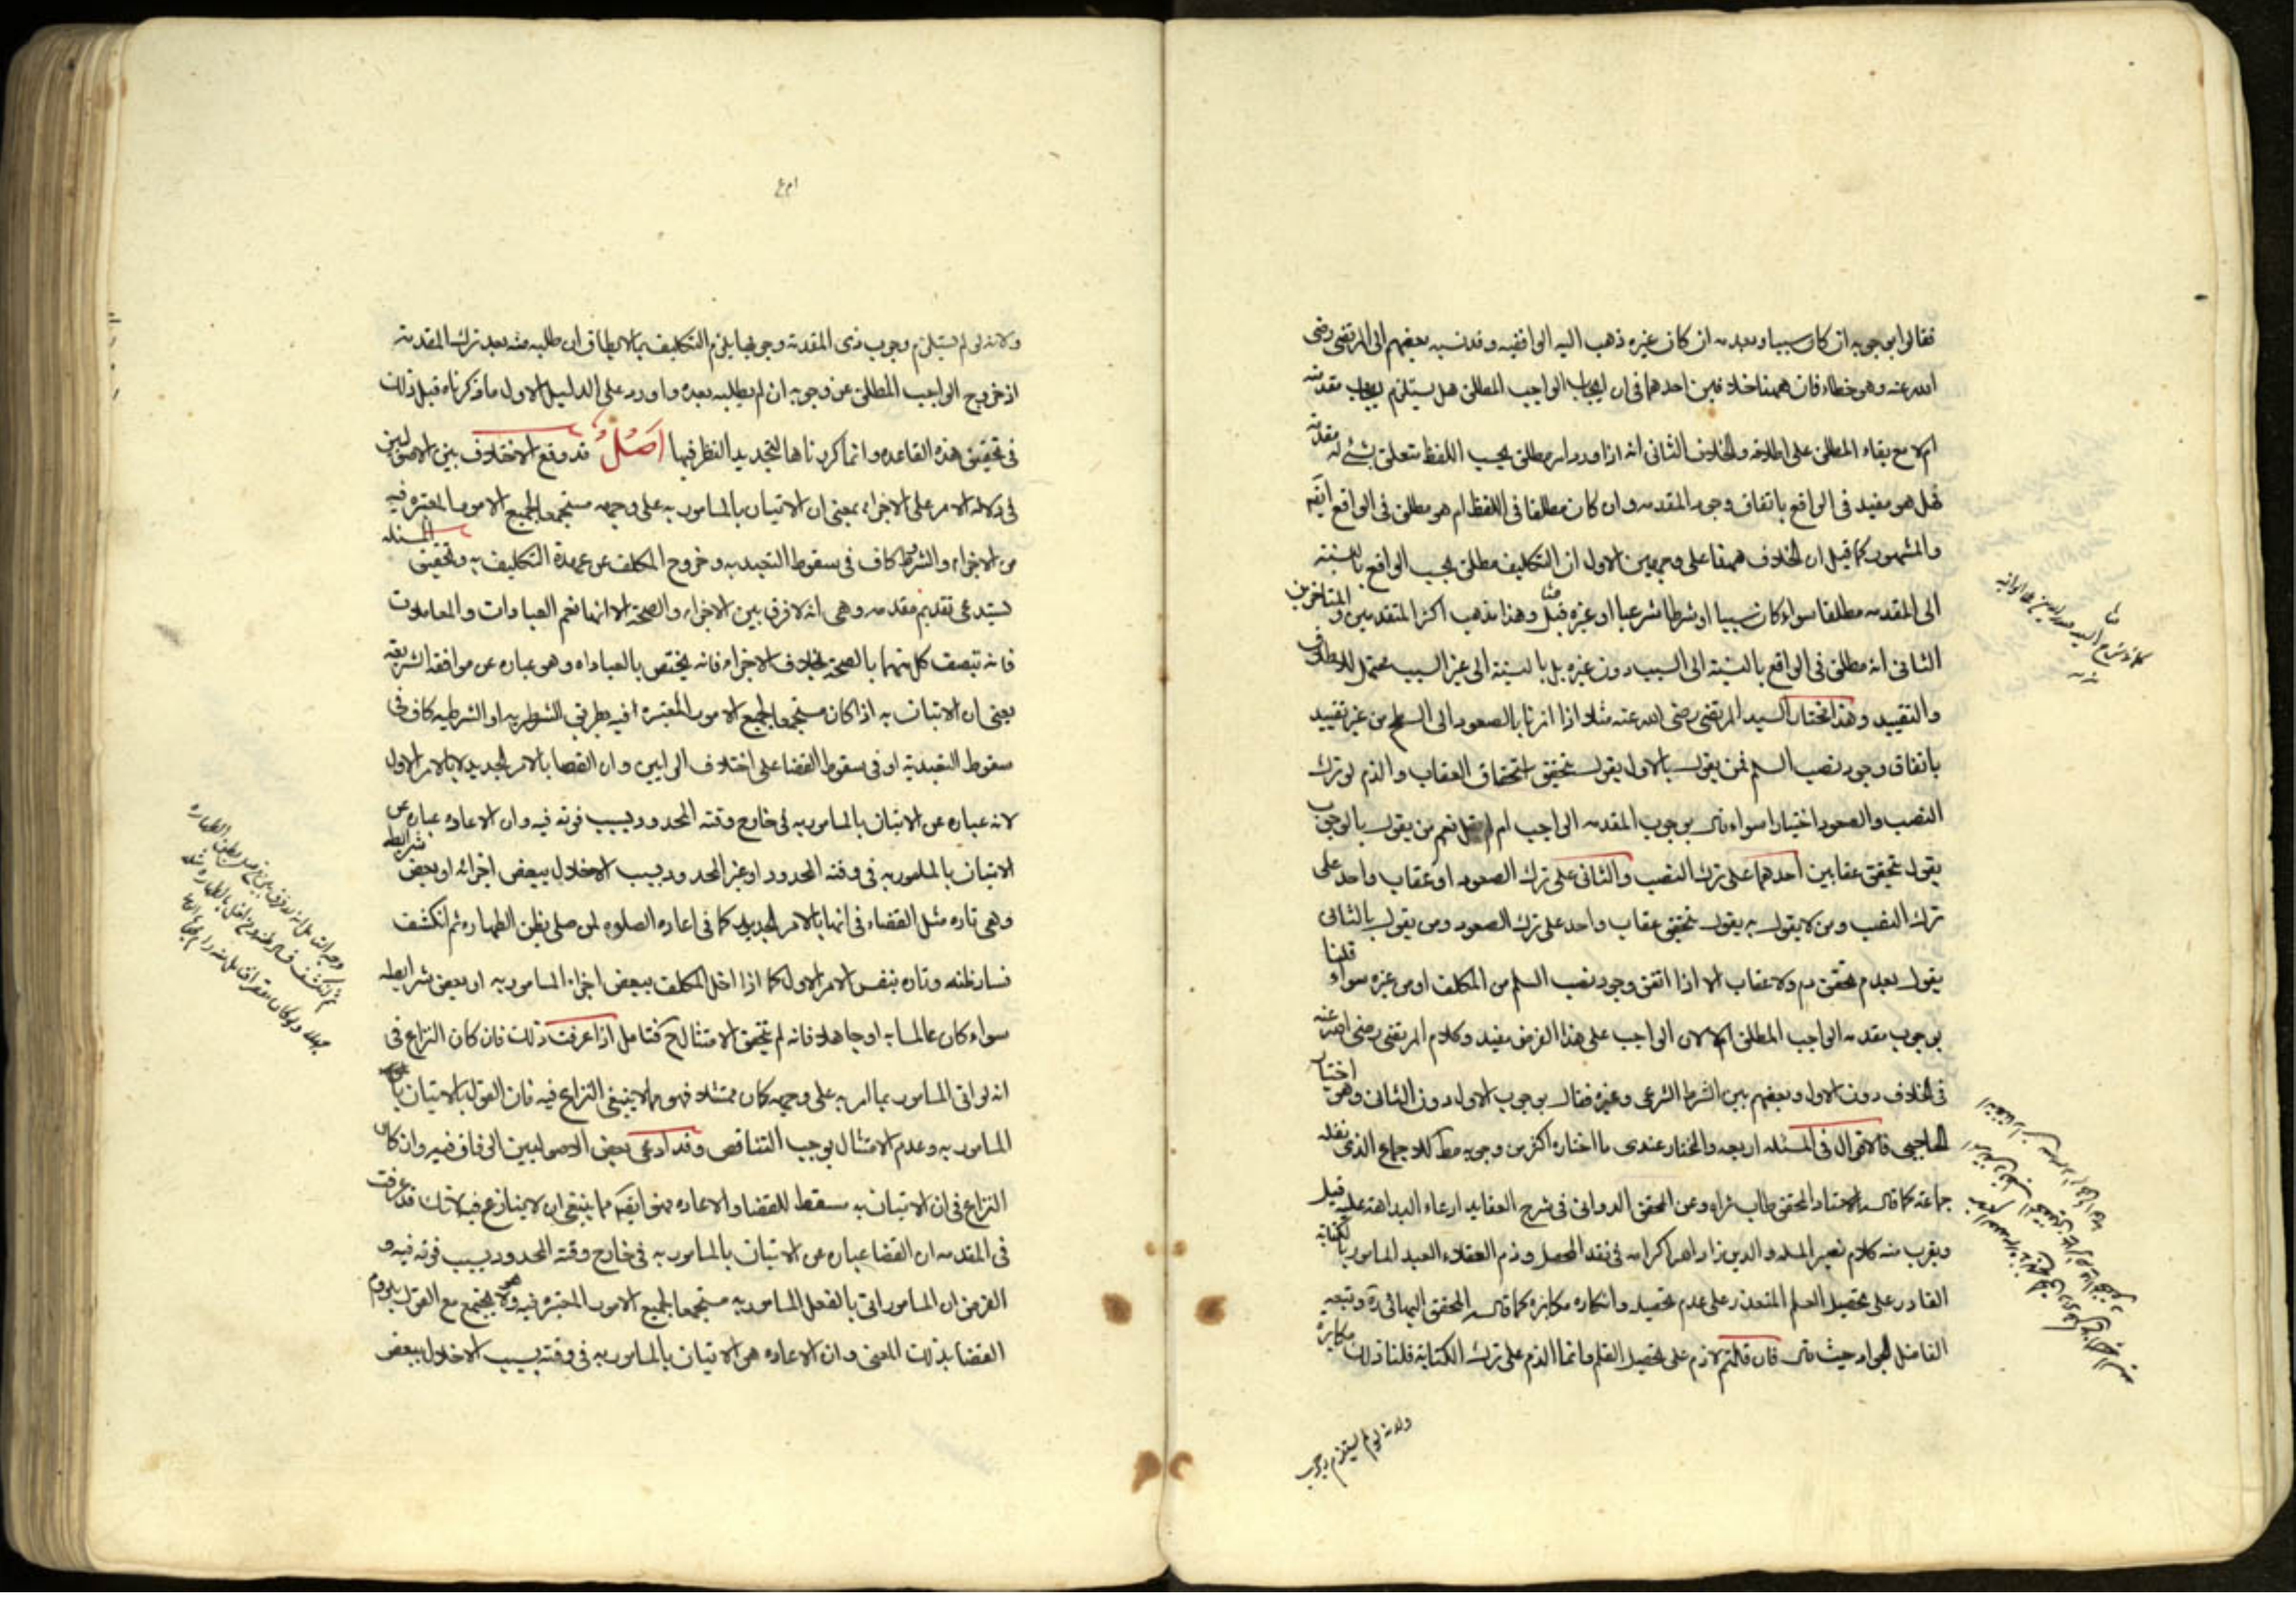 فقالوا بوجوبه ان كان سببا وبعدمه ان كان غيره ذهب اليه الواقفيه وقد نسبه بعضهم الى المرتضى رضى
الله عنه وهو خطاء فان ههنا خلافين احدهما فى ان ايجاب الواجب المطلق هل يستلزم ايجاب مقدمته
ام لا مع بقاء المطلق على اطلاقه والخلاف الثانى انه اذا ورد امر مطلق بحسب اللفظ متعلق بشئ له مقدمة
فهل هو مقيد فى الواقع باتفاق وجود المقدمه وان كان مطلقا فى اللفظ ام هو مطلق فى الواقع ايضا
والمشهور كما قيل ان الخلاف ههنا على وجهين الاول ان التكليف مطلق بحسب الواقع بالنسبة
الى المقدمه مطلقا سواء كان سببا او شرطا شرعيا او غيره وهذا مذهب اكثر المتقدمين والمتاخرين
الثانى انه مطلق فى الواقع بالنسبة الى السبب دون غيره بل بالنسبة الى غير السبب محتمل للاطلاق
والتقييد وهذا مختار السيد المرتضى رضى الله عنه مثلا اذا امرنا بالصعود الى السطح من غير تقييد
باتفاق وجود نصب السلم فمن يقول بالاول يقول بتحقق استحقاق العقاب والذم لو ترك
النصب والصعود اختيارا سواء قال بوجوب المقدمه الواجب ام لم يقل نعم من يقول بالوجوب
يقول بتحقق عقابين احدهما على ترك النصب والثانى على ترك الصعود او عقاب واحد على
ترك النصب ومن لا يقول به يقول بتحقق عقاب واحد على ترك الصعود ومن يقول بالثانى
يقول بعدم تحقق ذم ولا عقاب الا اذا اتفق وجود نصب السلم من المكلف او من غيره سواء قلنا
بوجوب مقدمه الواجب المطلق ام لا لان الواجب على هذا الفرض مقيد وكلام المرتضى رضى الله عنه
فى الخلاف دون الاول وبعضهم بين الشرط الشرعى وغيره فقال بوجوب الاول دون الثانى وهو اختيار
الحاجبى فالاقوال فى المسئله اربعه والمختار عندى ما اختاره اكثر من وجوبه مط للاجماع الذى نقله
جماعة كما قاله الاستاد المحقق طاب ثراه وعن المحقق الدوانى فى شرح العقايد ادعاء البداهة عليه قيل
ويقرب منه كلام نصير المله والدين زاد الله اكرامه فى نقد المحصل وذم العقلاء العبد المامور بالكتابة
القادر على تحصيل القلم المتعذر على عدم تحصيله وانكاره مكابره كما قاله المحقق البهائى ره وتبعه
الفاضل الجواد حيث قال فان قلتم لا ذم على تحصيل القلم وانما الذم على ترك الكتابة قلنا ذلك مكابرة
ولانه لو لم يستلزم وجوب
ولانه لو لم يستلزم وجوب ذى المقدمة وجوبها يلزم التكليف بما لا يطاق ان طلبه منه بعد ترك المقدمة
اذ خروج الواجب المطلق عن وجوبه ان لم يطلبه بعده واورد على الدليل الاول ما ذكرناه قبل ذلك
فى تحقيق هذه القاعده وانما كررناها لتجديد النظر فيها اصل قد وقع الاختلاف بين الاصوليين
فى دلالة الامر على الاجزاء بمعنى ان الاتيان بالمامور به على وجهه مستجمعا لجميع الامور المعتبره فيه
من الاجزاء والشروط كاف فى سقوط التعبد به وخروج المكلف عن عهدة التكليف به وتحقيق المسئله
يستدعى تقديم مقدمه وهى انه لا فرق بين الاجزاء والصحة الا انها تعم العبادات والمعاملات
فانه يتصف كل منهما بالصحة بخلاف الاجزاء فانه يختص بالعباداه وهو عباره عن موافقة الشريعة
بمعنى ان الاتيان به اذا كان مستجمعا لجميع الامور المعتبره فيه بطريق الشطريه او الشرطيه كاف فى
سقوط التعبد به او فى سقوط القضا على اختلاف الرايين وان القضا بالامر الجديد لا بالامر الاول
لانه عباره عن الاتيان بالمامور به فى خارج وقته المحدود بسبب فوته فيه وان الاعاده عباره عن
الاتيان بالمامور به فى وقته المحدود او غير المحدود بسبب الاخلال ببعض اجزائه او بعض شرايطه
وهى تاره مثل القضاء فى انها بالامر الجديد كما فى اعاده الصلوه لمن صلى بظن الطهاره ثم انكشف
فساد ظنه وتاره بنفس الامر الاول كما اذا اخل المكلف ببعض اجزاء المامور به او بعض شرايطه
سواء كان عالما به او جاهلا فانه لم يتحقق الامتثال ح فتامل اذا عرفت ذلك فان كان النزاع فى
انه لو اتى المامور بما امر به على وجهه كان ممتثلا فهو مما لا ينبغى النزاع فيه فان القول بالاتيان
المامور به وعدم الامتثال يوجب التناقض وقد ادعى بعض الاصوليين الوفاق فيه وان كان
النزاع فى ان الاتيان به مسقط للقضا والاعاده فهو ايضا مما ينبغى ان لا يتنازع فيه لانك قد عرفت
فى المقدمه ان القضا عباره عن الاتيان بالمامور به فى خارج وقته المحدود بسبب فوته فيه و
الفرض ان المامور اتى بالفعل المامور به مستجمعا لجميع الامور المعتبره فيه وهو لا يجتمع مع القول بلزوم
القضا بذلك المعنى وان الاعاده هى الاتيان بالمامور به فى وقته بسبب الاخلال ببعض